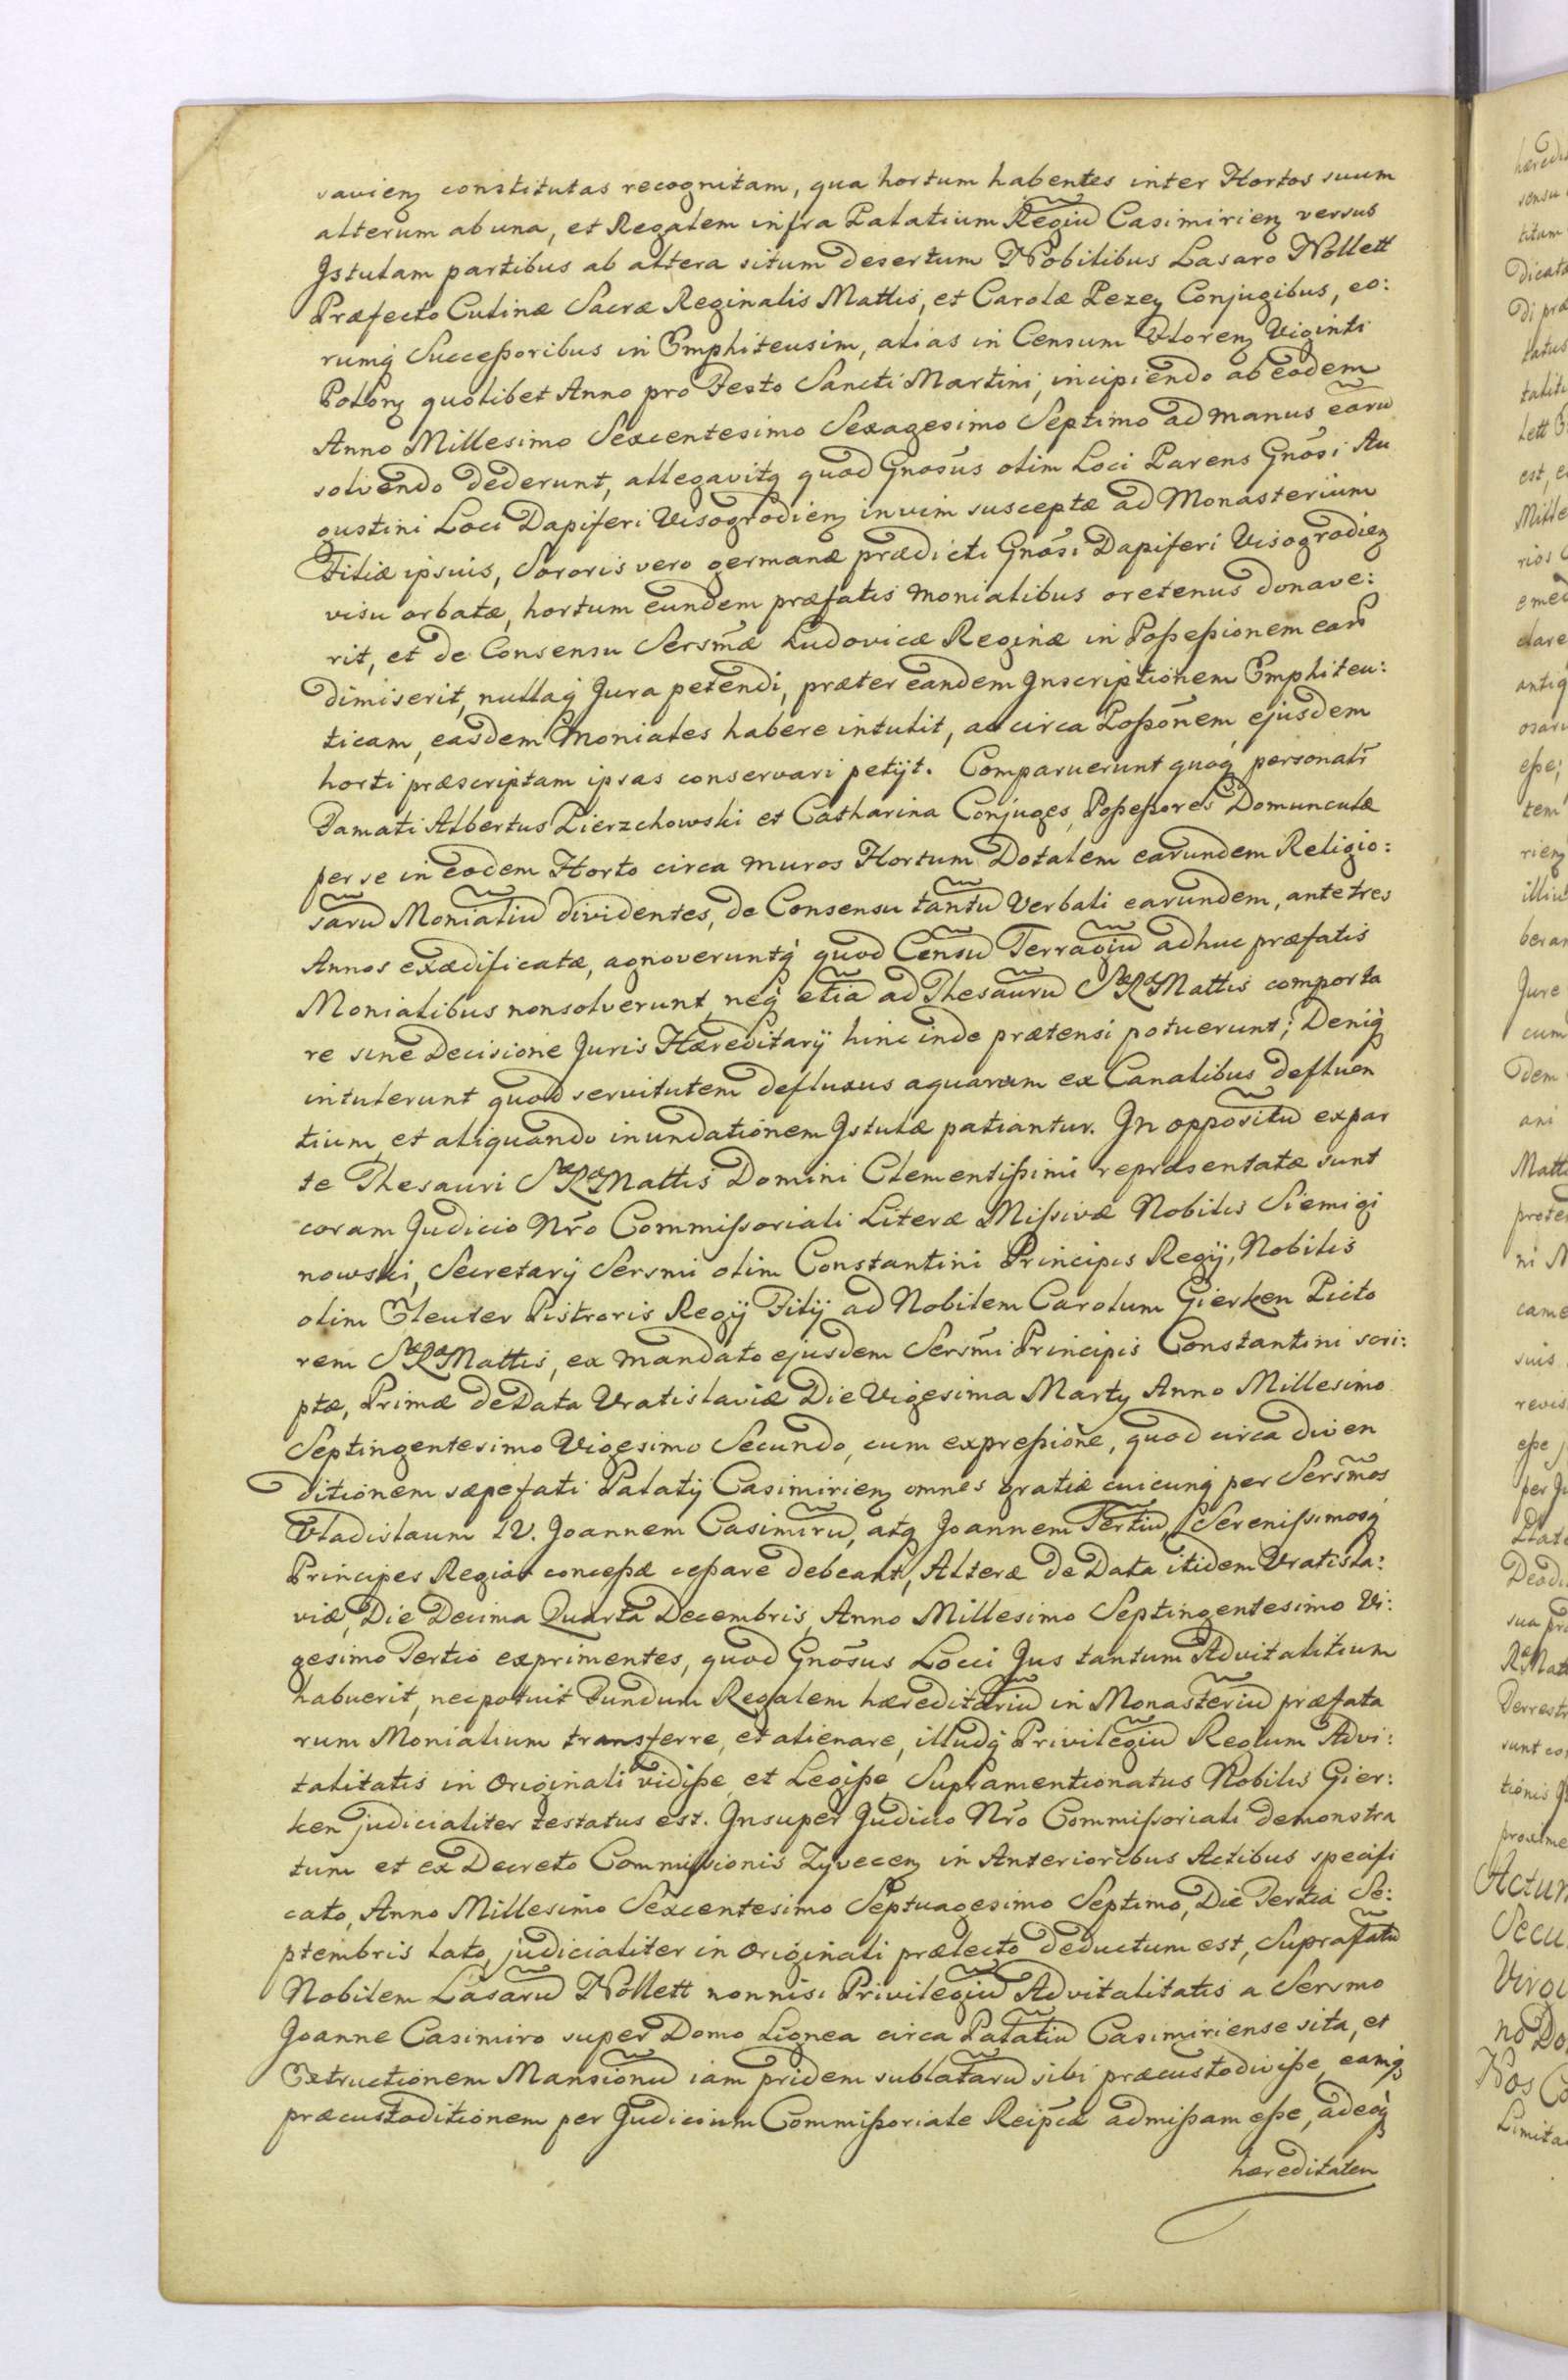 savien constitutas recognitam, qua hortum habentes inter Hortos suum
alterum ab una, et Regalem infra Palatium Regiu Casimirien versus
Istulam partibus ab altera situm desertum Nobilibus Lasaro Nollett
Præfecto Culinæ Sacræ Reginalis Mattis, et Carolæ Pezey Conjugibus, eo:
rumq Successoribus in Emphiteusim, alias in Censum Floren Viginti
Polon quolibet Anno pro Festo Sancti Martini, incipiendo ab eodem
Anno Millesimo Sexcentesimo Sexagesimo Septimo ad manus earu
solvendo dederunt, allegavitq quod Gnosus olim Loci Parens Gnosi Au
gustini Loci Dapiferi Visogrodien in vim susceptæ ad Monasterium
Filiæ ipsius, Sororis vero germanæ prædicti Gnosi Dapiferi Visogrodien
visu orbatæ, hortum eundem præfatis Monialibus oretenus donave:
rit, et de Consensu Sersmæ Ludovicæ Reginæ in Possessionem earu
dimiserit, nullaq Jura petendi, præter eandem Inscriptionem Emphiteu:
ticam, easdem Moniales habere intulit, ac circa Possonem ejusdem
horti præscriptam ipsas conservari petijt. Comparuerunt quoq personalr
Famati Albertus Lierzchowski et Catharina Conjuges, Possessores Domunculæ
per se in eodem Horto circa muros Hortum Dotalem earundem Religio:
saru Monialiu dividentes, de Consensu tantu Verbali earundem, ante tres
Annos exædificatæ, agnoveruntq quod Censu Terragiu adhuc præfatis
Monialibus non solverunt, neq etia ad Thesauru SæRæMattis comporta
re sine Decisione Juris Hæreditarij hinc inde prætensi potuerunt; Deniq
intulerunt quod servitutem defluxus aquarum ex Canalibus defluen
tium, et aliquando inundationem Istulæ patiantur. In oppositu ex par
te Thesauri SæRæMattis Domini Clementissimi repræsentatæ sunt
coram Judicio Nro Commissoriali Literæ Missivæ Nobilis Siemigi
nowski, Secretarij Sersmi olim Constantini Principis Regij, Nobilis
olim Eleuter Pistroris Regij Filij ad Nobilem Carolum Gierken Picto
rem SæRæMattis, ex mandato ejusdem Sersmi Principis Constantini scri:
ptæ, Primæ de Data Vratislaviæ Die Vigesima Martij Anno Millesimo
Septingentesimo Vigesimo Secundo, cum expressione, quod circa diven
ditionem sæpefati Palatij Casimirien omnes gratiæ cuicunq per Sersmos
Vladislaum IV. Joannem Casimiru, atq Joannem Tertiu, Serenissimosq
Principes Regios concessæ cessare debeant, Alteræ de Data itidem Vratisla:
viæ, Die Decima Quarta Decembris, Anno Millesimo Septingentesimo Vi:
gesimo Tertio exprimentes, quod Gnosus Locci Jus tantum Advitalitium
habuerit, nec potuit Fundum Regalem hæreditariu in Monasteriu præfata
rum Monialium transferre, et alienare, illudq Privilegiu Regium Advi:
talitatis in Originali vidisse, et Legisse, Supramentionatus Nobilis Gier:
ken judicialiter testatus est. Insuper Judicio Nro Commissoriali demonstra
tum et ex Decreto Commissionis Zyvecen in Anterioribus Actibus specifi
cato, Anno Millesimo Sexcentesimo Septuagesimo Septimo, Die Tertia Se:
ptembris lato, judicialiter in Originali prælecto deductum est, Suprafatu
Nobilem Lasaru Nollett nonnisi Privilegiu Advitalitatis a Sersmo
Joanne Casimiro super Domo Lignea circa Palatiu Casimiriense sita, et
Extructionem Mansionu iam pridem sublataru sibi præcustodivisse, eamq
præcustoditionem per Judicium Commissoriale Reipcæ admissam esse, adeoq
hæreditatem